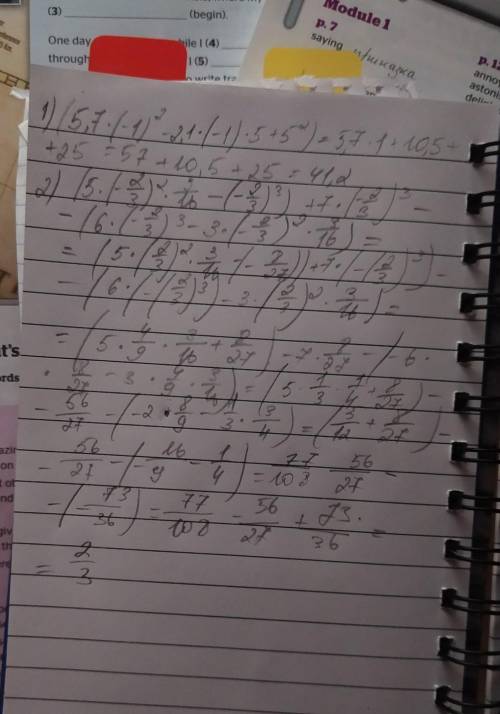 (3) ______ (begin).
One day
through
I (4)
I (5)
Module 1
p. 7
saying
1) (5,7 · (-1)² - 2,1 · (-1) · 5 + 5²) = 5,7 · 1 + 10,5 +
+ 25 = 57 + 10,5 + 25 = 41,2
2) (5 · (-2/3)² · 3/16 - (-2/3)³) + 7 · (-2/3)³ -
- (6 · (-2/3)³ - 3 · (-2/3)² · 3/16) =
= (5 · (2/3)² · 3/16 - (-8/27)) + 7 · (-(2/3)³) -
- (6 · (-(2/3)³) - 3 · (2/3)² · 3/16) =
= (5 · 4/9 · 3/16 + 8/27) - 7 · 8/27 - (-6 ·
· 8/27 - 3 · 4/9 · 3/16) = (5 · 1/3 · 1/4 + 8/27) -
- 56/27 - (-2 · 8/9 - 1/3 · 3/4) = (5/12 + 8/27) -
- 56/27 - (-16/9 - 1/4) = 77/108 - 56/27 -
- (-73/36) = 77/108 - 56/27 + 73/36 =
= 2/3